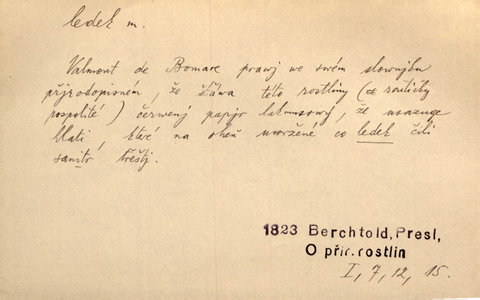 ledek m.
Valmont de Bomare prawj we swém slownjku
přjrodopisném, že šťáwa této rostliny (
rospolité) čerwený papjr lakmusowý, že usazuge
blati, které na oheň uwržené co ledek čili
sanitr třeštj.
1823 Berchtold, Presl,
O přir. rostlin
I, 7, 12, 15.